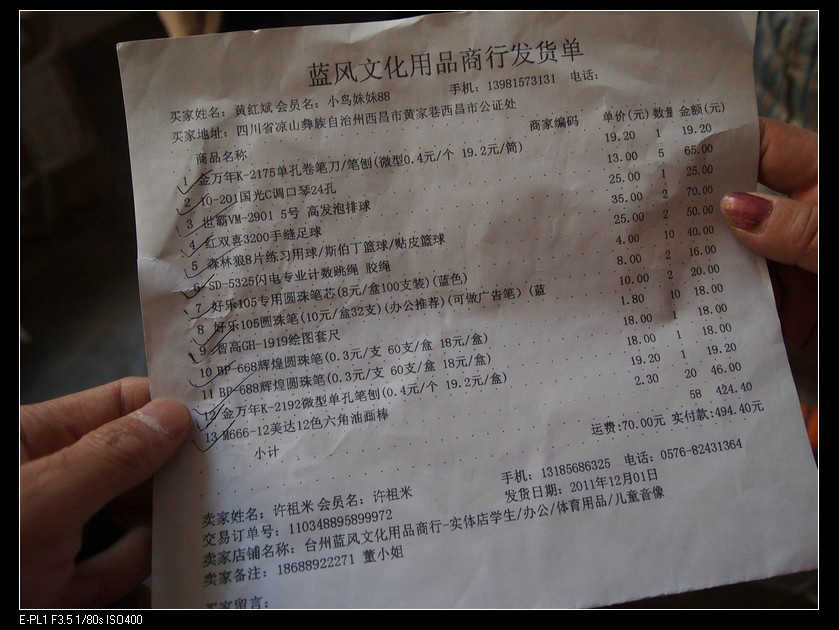 蓝风文化用品商行发货单
买家姓名：黄红斌 会员名：小鸟妹妹88 手机：13981573131 电话：
买家地址：四川省凉山彝族自治州西昌市黄家巷西昌市公证处
商品名称 商家编码 单价(元) 数量 金额(元)
1 金万年K-2175单孔卷笔刀/笔刨(微型0.4元/个 19.2元/筒) 19.20 1 19.20
2 10-201国光C调口琴24孔 13.00 5 65.00
3 世霸VM-2901 5号 高发泡排球 25.00 1 25.00
4 红双喜3200手缝足球 35.00 2 70.00
5 森林狼8片练习用球/斯伯丁篮球/贴皮篮球 25.00 2 50.00
6 SD-5325闪电专业计数跳绳 胶绳 4.00 10 40.00
7 好乐105专用圆珠笔芯(8元/盒100支装)(蓝色) 8.00 2 16.00
8 好乐105圆珠笔(10元/盒32支)(办公推荐)(可做广告笔)(蓝 10.00 2 20.00
9 智高GH-1919绘图套尺 1.80 10 18.00
10 BP-668辉煌圆珠笔(0.3元/支 60支/盒 18元/盒) 18.00 1 18.00
11 BP-688辉煌圆珠笔(0.3元/支 60支/盒 18元/盒) 18.00 1 18.00
12 金万年K-2192微型单孔笔刨(0.4元/个 19.2元/盒) 19.20 1 19.20
13 M666-12美达12色六角油画棒 2.30 20 46.00
小计 58 424.40
运费:70.00元 实付款:494.40元
卖家姓名：许祖米 会员名：许祖米 手机：13185686325 电话：0576-82431364
交易订单号：110348895899972 发货日期：2011年12月01日
卖家店铺名称：台州蓝风文化用品商行-实体店学生/办公/体育用品/儿童音像
卖家备注：18688922271 董小姐
买家留言：
E-PL1 F3.5 1/80s ISO400